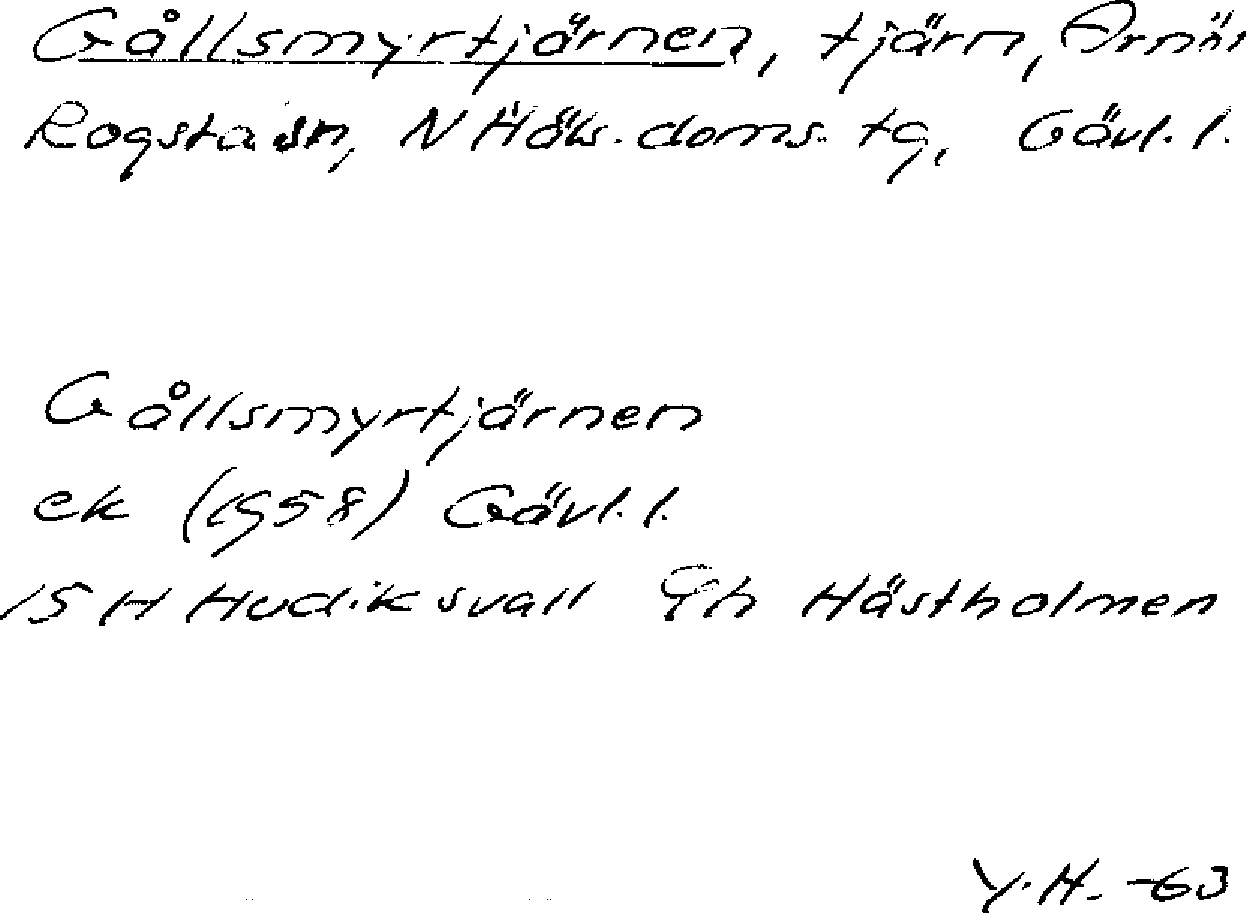 Gållsmyrtjärnen, tjärn, Arnön
Rogsta sn, N Häls. doms. tg, Gävl. l.
Gållsmyrtjärnen
ek (1958) Gävl. l.
15 H Hudiksvall 9h Hästholmen
Y. H. -63